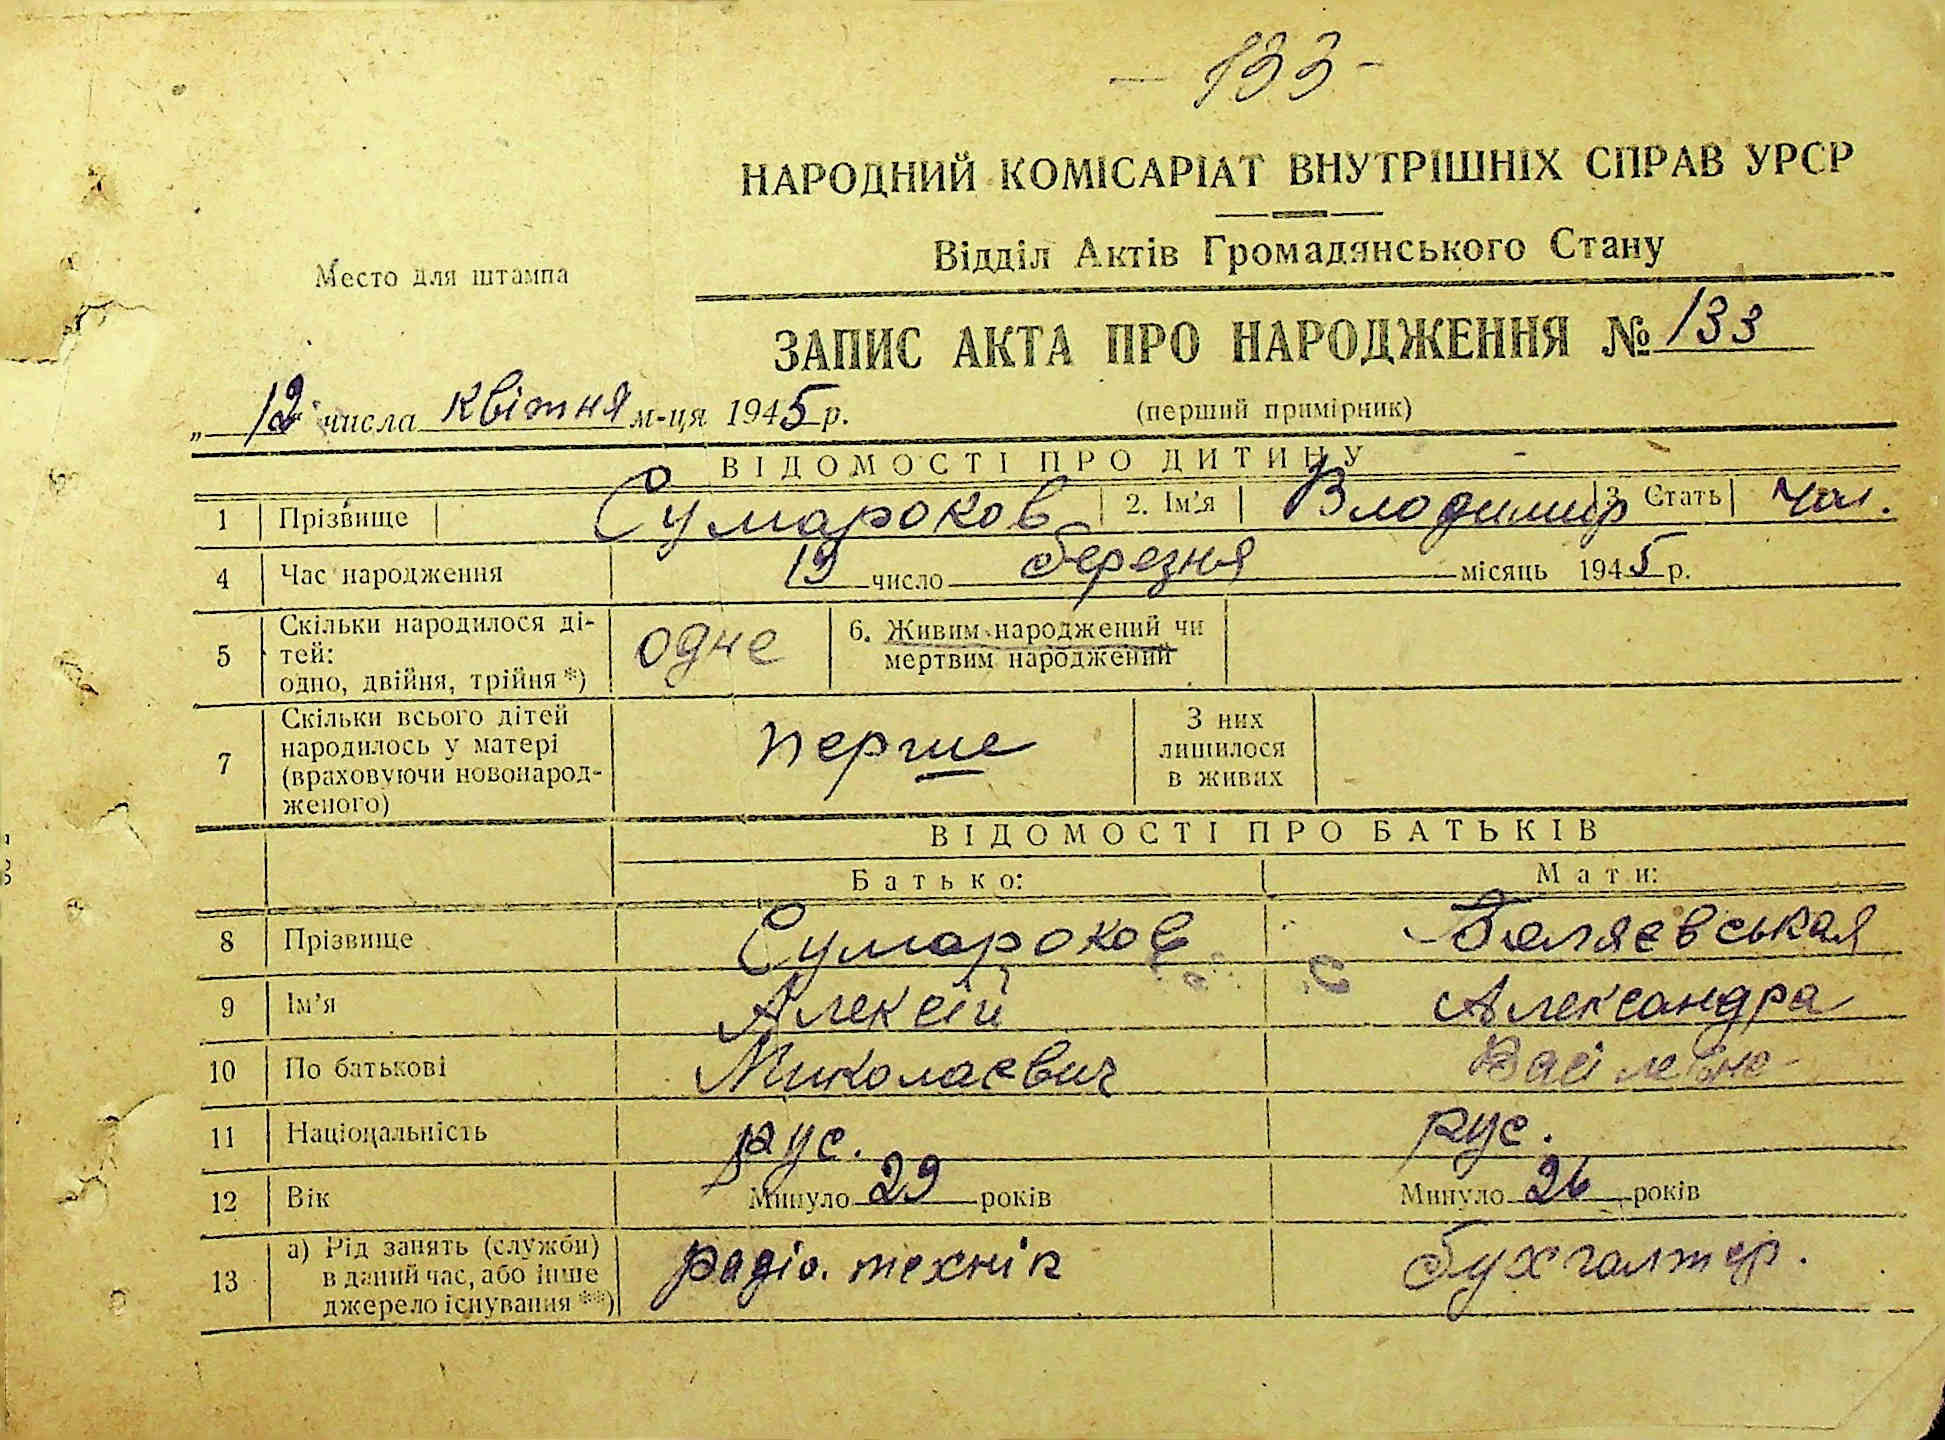 - 133 -
НАРОДНИЙ КОМІСАРІАТ ВНУТРІШНІХ СПРАВ УРСР
Відділ Актів Громадянського Стану
Место для штампа
ЗАПИС АКТА ПРО НАРОДЖЕННЯ № 133
„ 12 числа квітня м-ця 1945 р. (перший примірник)
ВІДОМОСТІ ПРО ДИТИНУ
1 Прізвище Сумароков 2. Ім'я Володимир 3. Стать чол.
4 Час народження 19 число березня місяць 1945 р.
5 Скільки народилося ді-
тей:
одно, двійня, трійня *) одне 6. Живим народжений чи
мертвим народжений
7 Скільки всього дітей
народилось у матері
(враховуючи новонарод-
женого) перше З них
лишилося
в живих
ВІДОМОСТІ ПРО БАТЬКІВ
Батько: Мати:
8 Прізвище Сумароков
9 Ім'я Алексій Александра
10 По батькові Миколаевич
11 Національність рус. рус.
12 Вік Минуло 29 років Минуло 26 років
13 а) Рід занять (служби)
в даний час, або інше
джерело існування **) радіо. технік бухгалтер.